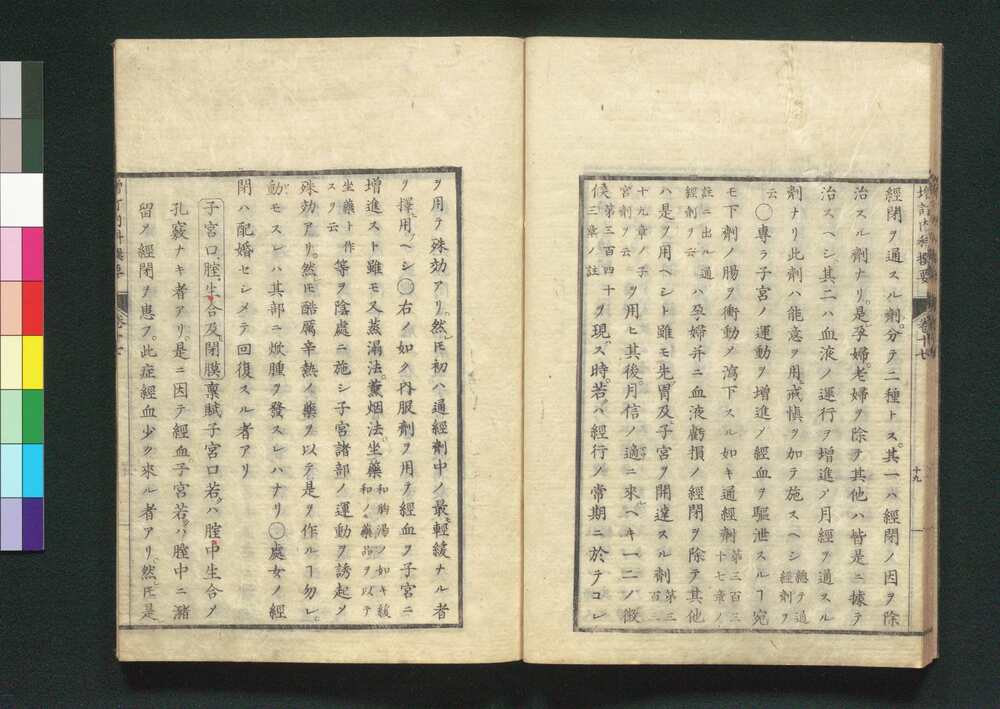 增訂內科撰要 卷十七 十九
經閉ヲ通スル劑。分テ二種トス。其一ハ經閉ノ因ヲ除
治スル劑ナリ。是孕婦。老婦ヲ除テ其他ハ皆是ニ據テ
治スヘシ其二ハ血液ノ運行ヲ增進シ月經ヲ通スル
劑ナリ此劑ハ能意ヲ用。戒愼ヲ加テ施スヘシ 總テ通經劑ヲ
云 〇專ラ子宮ノ運動ヲ增進シ經血ヲ驅泄スルヿ宛
モ下劑ノ腸ヲ衝動シ瀉下スル如キ通經劑 第三百三十七章ノ
註ニ出ル通經劑ヲ云 ハ孕婦并ニ血液虧損ノ經閉ヲ除テ其他
ハ是ヲ用ヘシト雖モ先。胃及。子宮ヲ開達スル劑 第三百二
十九章ノ子宮劑ヲ云 ヲ用ヒ其後。月信ノ適ニ來ヘキ一二ノ徵
候 第三百四十三章ノ註 ヲ現ス時。若ハ經行ノ常期ニ於テコレ
ヲ用テ殊効アリ。然𪜈初ハ通經劑中ノ最輕緩ナル者
ヲ擇用ヘシ〇右ノ如ク內服劑ヲ用テ經血ヲ子宮ニ
增進スト雖モ又蒸漏法。薰烟法。坐藥 和胸湯ノ如キ緩和ノ藥品ヲ以テ
坐藥ト作スヲ云 等ヲ陰處ニ施シ子宮諸部ノ運動ヲ誘起シ
殊効アリ。然𪜈酷厲辛熱ノ藥ヲ以テ是ヲ作ルヿ勿レ。
動モスレハ其部ニ焮腫ヲ發スレハナリ〇處女ノ經
閉ハ配婚セシメテ回復スル者アリ
子宮口。腟。生合及。閉膜稟賦子宮口若。ハ腟中生合シ
孔竅ナキ者アリ。是ニ因テ經血子宮若。ハ腟中ニ瀦
留シ經閉ヲ患フ。此症經血少ク來ル者アリ。然𪜈是